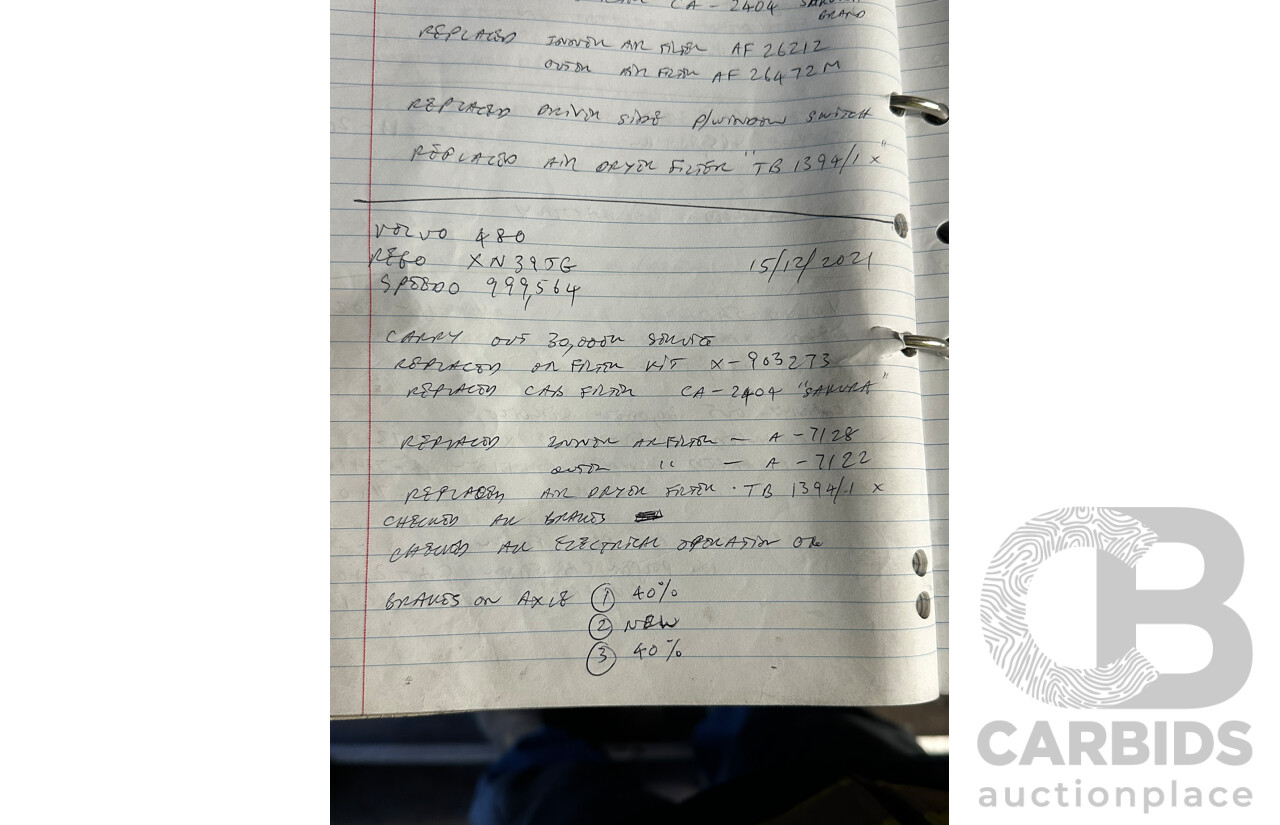 CA - 2404 SAKURA
BRAND
REPLACED INNER AIR FILTER AF 26212
OUTER AIR FILTER AF 26472M
REPLACED DRIVER SIDE P/WINDOW SWITCH
REPLACED AIR DRYER FILTER "TB 1394/1 x"
VOLVO 480
REGO XN39JG 15/12/2021
SPEEDO 999,564
CARRY OUT 30,000K SERVICE
REPLACED OIL FILTER KIT X-903273
REPLACED CAB FILTER CA-2404 "SAKURA"
REPLACED INNER AIR FILTER - A-7128
OUTER " - A-7122
REPLACED AIR DRYER FILTER · TB 1394/1 x
CHECKED ALL BRAKES
CHECKED ALL ELECTRICAL OPERATION OK
BRAKES ON AXLE 1 40%
2 NEW
3 40%
CB
CARBIDS
auctionplace